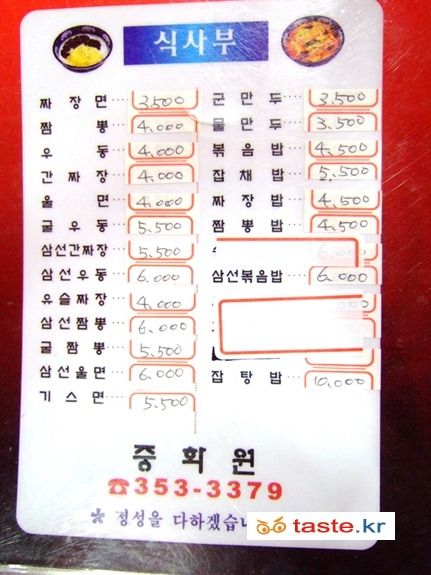 식사부
짜장면 3.500
짬뽕 4.000
우동 4.000
간짜장 4.000
울면 4.000
굴우동 5.500
삼선간짜장 5.500
삼선우동 6.000
유슬짜장 4.000
삼선짬뽕 6.000
굴짬뽕 5.500
삼선울면 6.000
기스면 5.500
군만두 3.500
물만두 3.500
볶음밥 4.500
잡채밥 5.500
짜장밥 4.500
짬뽕밥 4.500
삼선볶음밥 6.000
잡탕밥 10.000
중화원
☎353-3379
* 정성을 다하겠습니
taste.kr